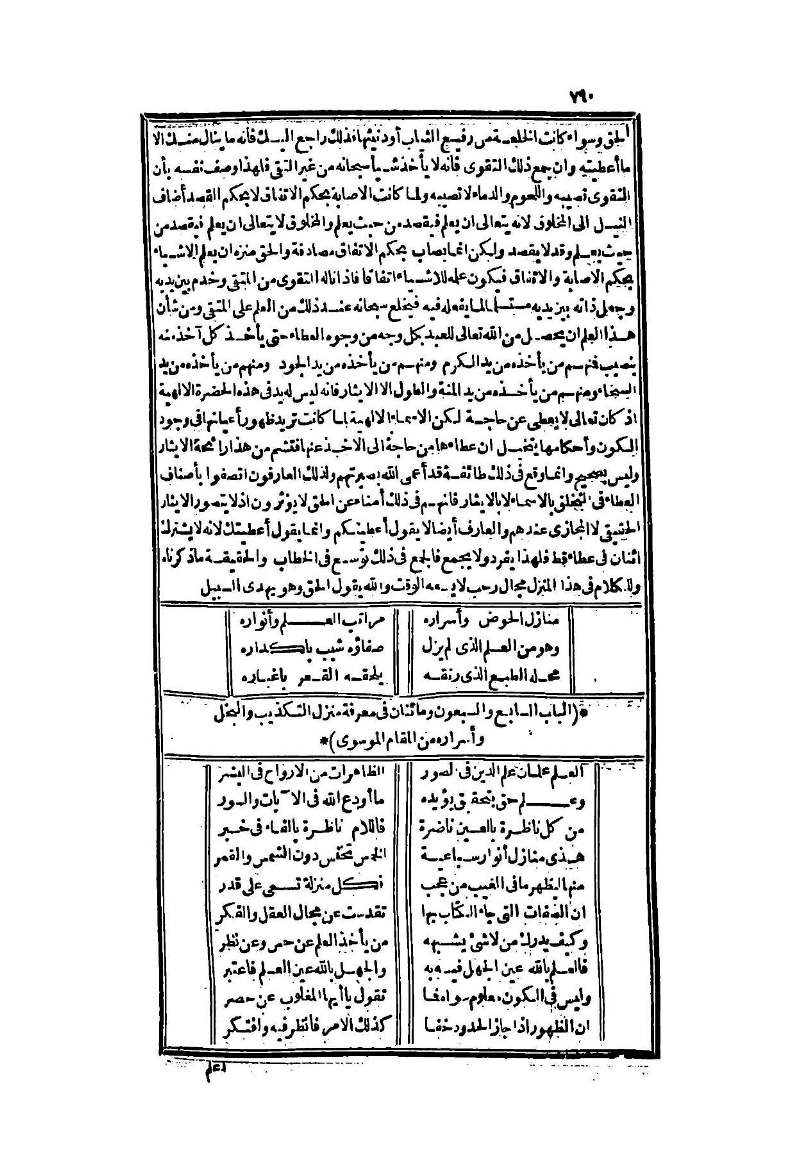 ٧٩٠
الحق وسواء كانت الخلعة من رفيع الثياب أو دنيئها فذلك راجع اليك فأنه ما ينال منك الا
ما أعطيته وان جمع ذلك التقوى فانه لا يأخذ شيأ سبحانه من غير التقى فلهذا وصف نفسه بأن
التقوى تصيبه واللحوم والدماء لا تصيبه ولما كانت الاصابة بحكم الاتفاق لا بحكم القصد أضاف
النيل الى المخلوق لانه يتعالى ان يعلم فيقصد من حيث يعلم والمخلوق لا يتعالى ان يعلم فيقصد من
حيث يعلم وقد لا يقصد ولكن انما يصاب بحكم الاتفاق مصادفة والحق منزه ان يعلم الاشياء
بحكم الاصابة والاتفاق فيكون علمه للاشياء اتفاقا فاذا ناله التقوى من المتقى وخدم بين يديه
وجعل ذاته بين يديه مستسلما لما يفعله فيه فيخلع سبحانه عند ذلك من العلم على المتقى ومن شأن
هذا العلم ان يحصل من الله تعالى للعبد بكل وجه من وجوه العطاء حتى يأخذ كل آخذ منه
بنصيب فمنهم من يأخذه من يد الكرم ومنهم من يأخذه من يد الجود ومنهم من يأخذه من يد
السخاء ومنهم من يأخذه من يد المنة والطول الا الايثار فانه ليس له يد فى هذه الحضرة الالهية
اذ كان تعالى لا يعطى عن حاجة لكن الاسماء الالهية لما كانت تريد ظهور أعيانها فى وجود
الكون وأحكامها يتخيل ان عطاءها من حاجة الى الاخذ عنها فتنسم من هذا رائحة الايثار
وليس بصحيح وانما وقع فى ذلك طائفة قد أعمى الله بصيرتهم ولذلك العارفون اتصفوا بأصناف
العطاء فى التخلق بالاسماء لا بالايثار فانهم فى ذلك أمناء عن الحق لا يؤثرون اذ لا يتصور الايثار
الحقيقى لا المجازى عندهم والعارف أيضا لا يقول أعطيتكم وانما يقول أعطيتك لانه لا يشترك
اثنان فى عطاء قط فلهذا يفرد ولا يجمع فالجمع فى ذلك توسع فى الخطاب والحقيقة ما ذكرناه
والكلام فى هذا المنزل مجال رحب لا يسعه الوقت والله يقول الحق وهو يهدى السبيل
منازل الحوض وأسراره مراتب العلم وأنواره
وهو من العلم الذى لم يزل صفاؤه شيب باكداره
محله الطبع الذى رنقه يلحقه القعر باغباره
*(الباب السابع والسبعون ومائتان فى معرفة منزل التكذيب والبخل
وأسراره من المقام الموسوى)*
العلم علمان علم الدين فى الصور الظاهرات من الارواح فى البشر
وعلم حق بتحقيق يؤيده ما أودع الله فى الآيات والسور
من كل ناظرة بالعين ناضرة فاللام ناظرة بالفاء فى خبر
هذى منازل أنوار سباعية الخمس تخنس دون الشمس والقمر
منها ليظهر ما فى الغيب من عجب فكل منزلة تسعى على قدر
ان الصفات التى جاء الكتاب بها تقدست عن مجال العقل والفكر
وكيف يدرك من لا شئ يشبهه من يأخذ العلم عن حس وعن نظر
فالعلم بالله عين الجهل فيه به والجهل بالله عين العلم فاعتبر
وليس فى الكون معلوم سواه فما تقول يا أيها المغلوب عن حصر
ان الظهور اذا جاز الحدود خفا كذلك الامر فانظر فيه وافتكر
اعلم